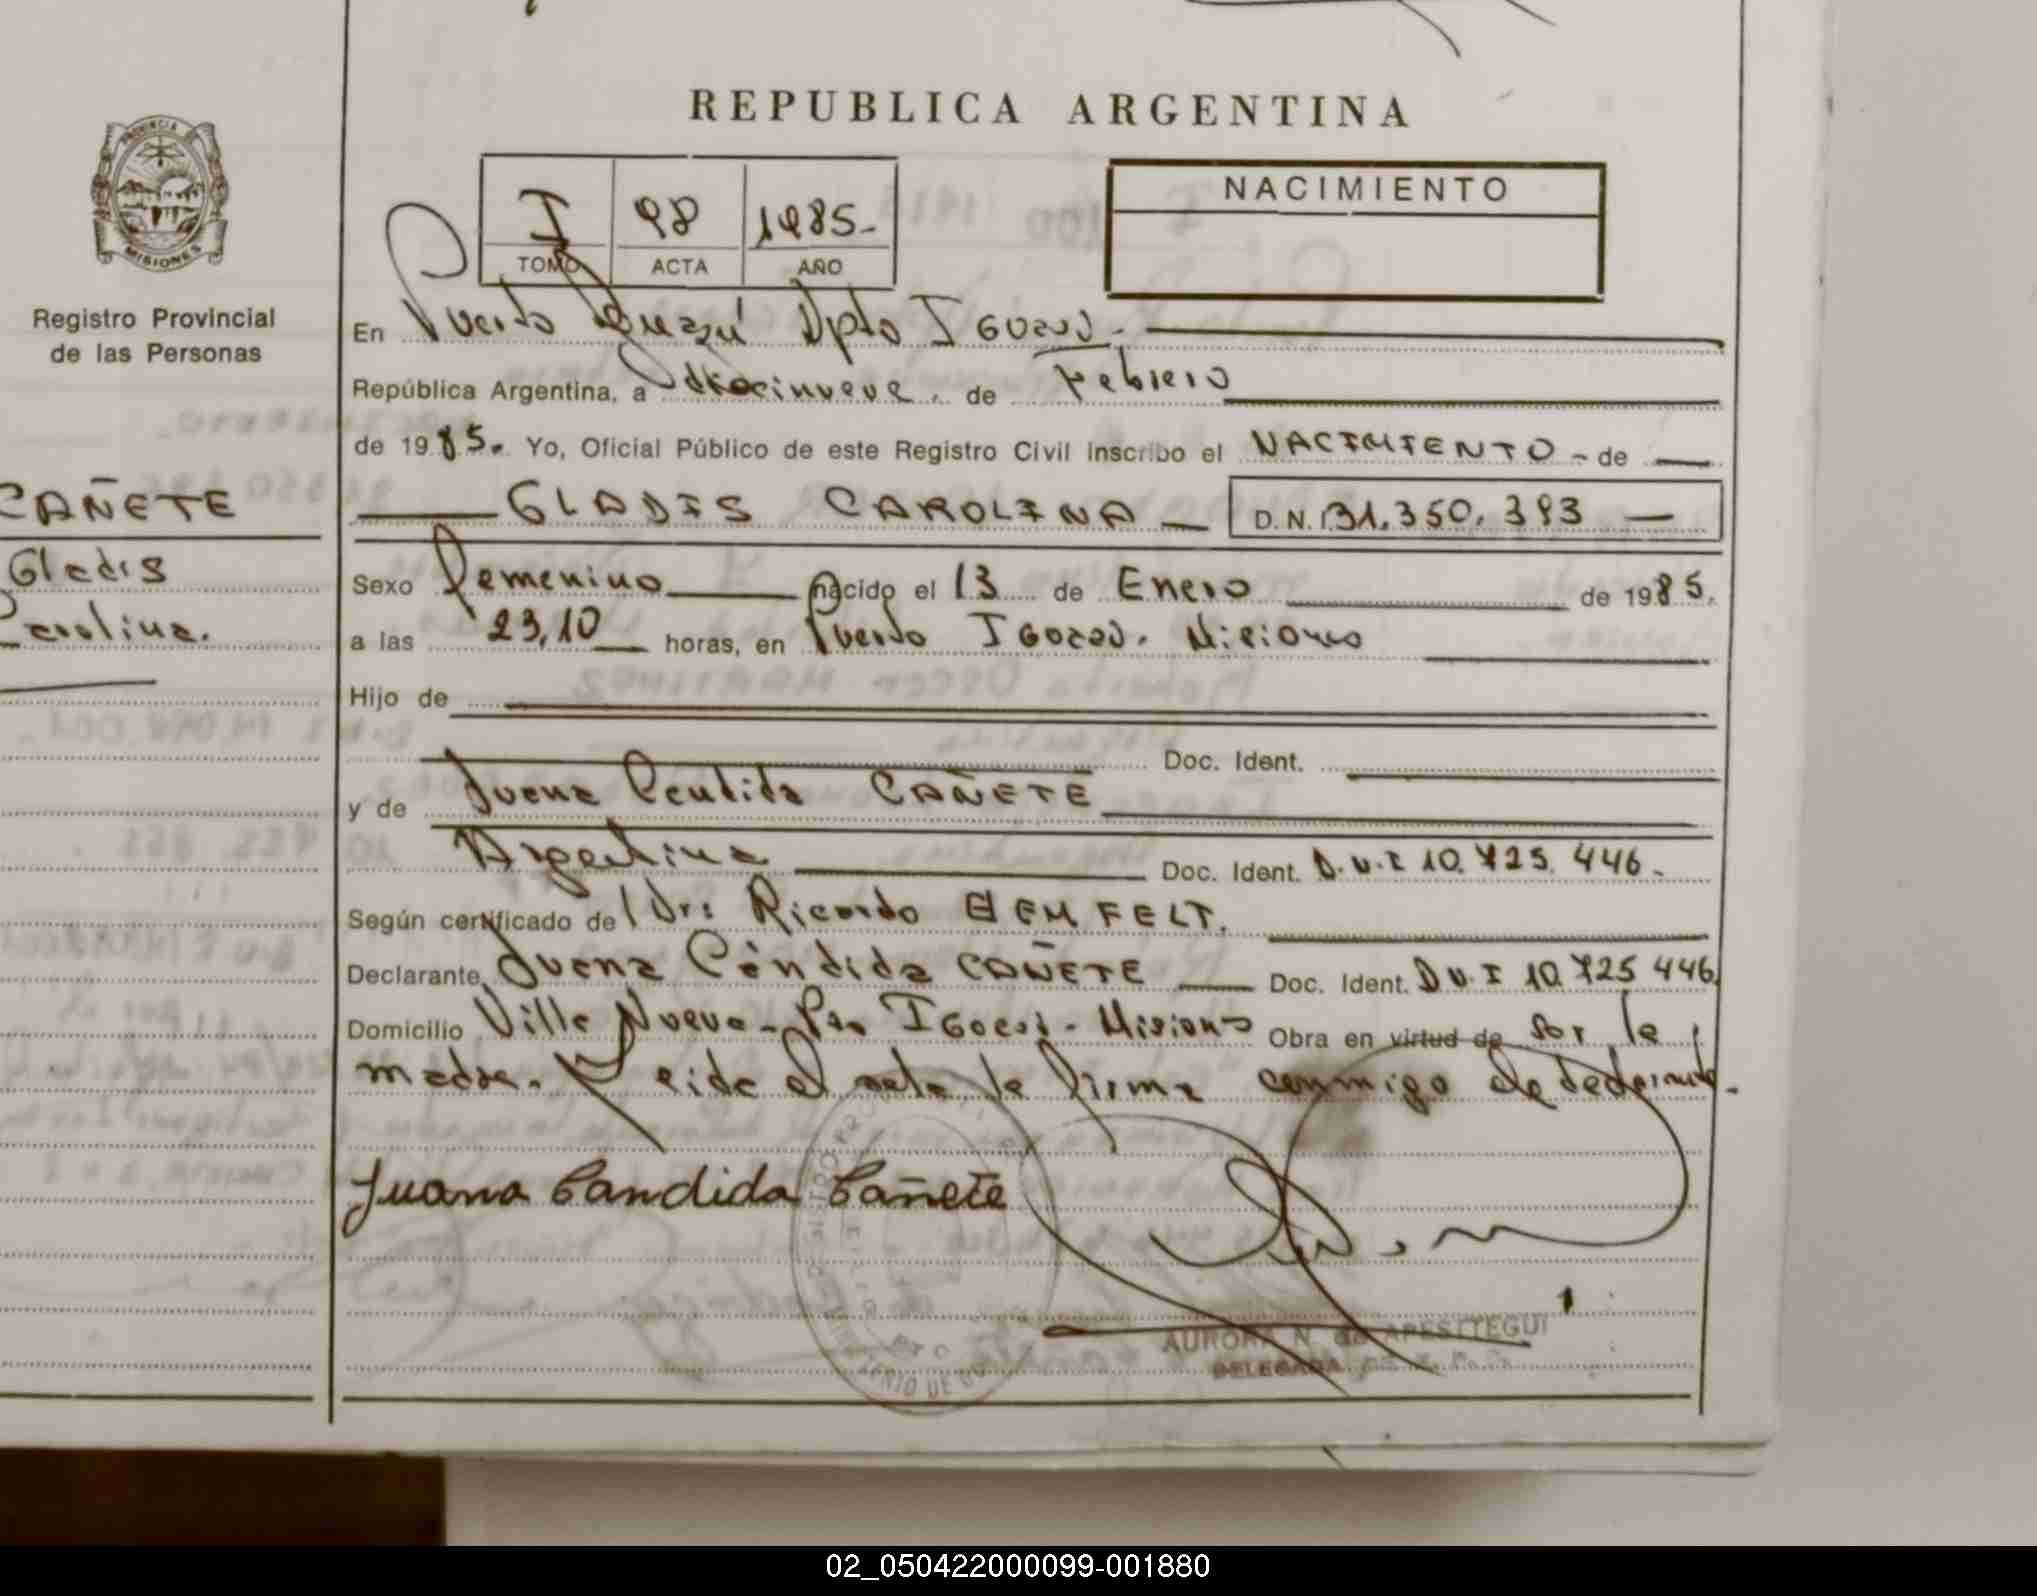 REPUBLICA ARGENTINA
PROVINCIA DE
MISIONES
Registro Provincial
de las Personas
I 98 1985.-
TOMO ACTA AÑO
NACIMIENTO
En Puerto Iguazú Dpto IGUAZÚ.-
República Argentina, a diecinueve, de Febrero
de 1985. Yo, Oficial Público de este Registro Civil inscribo el NACIMIENTO - de
CAÑETE
GLADIS CAROLINA D.N.I 31.350.393
Gladis
Carolina.
Sexo femenino nacido el 13 de Enero de 1985.
a las 23,10 horas, en Puerto IGUAZÚ. Misiones
Hijo de
Doc. Ident.
y de Juana Candida CAÑETE
Argentina Doc. Ident. D.N.I 10.725.446.-
Según certificado de Dr: Ricardo
Declarante Juana Cándida CAÑETE Doc. Ident. D N.I 10.725 446
Domicilio Villa Nueva - Pto IGUAZÚ - Misiones Obra en virtud de ser la
madre. Leida el acta la firma conmigo el declarante.
Juana Candida Cañete
AURORA N. de APESTEGUI
DELEGADA
02_050422000099-001880